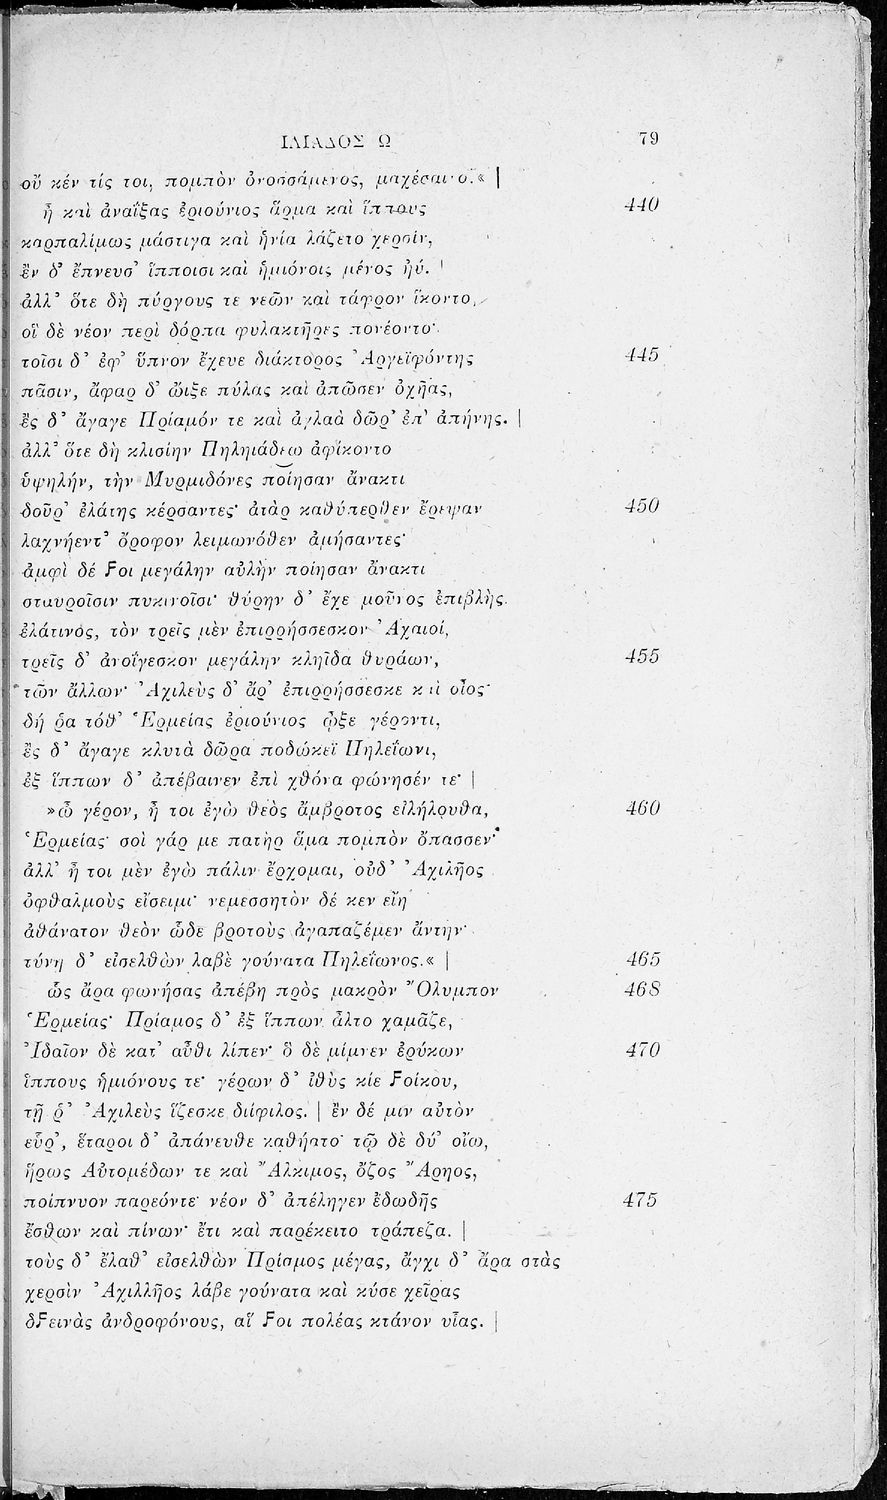 ΙΛΙΑΔΟΣ Ω 79
οὔ κέν τίς τοι, πομπὸν ὀνοσσάμενος, μαχέσαιτο.« |
ἦ καὶ ἀναΐξας ἐριούνιος ἅρμα καὶ ἵππους 440
καρπαλίμως μάστιγα καὶ ἡνία λάζετο χερσίν,
ἒν δ’ ἔπνευσ’ ἵπποισι καὶ ἡμιόνοις μένος ἠύ. |
ἀλλ’ ὅτε δὴ πύργους τε νεῶν καὶ τάφρον ἵκοντο,
οἳ δὲ νέον περὶ δόρπα φυλακτῆρες πονέοντο·
τοῖσι δ’ ἐφ’ ὕπνον ἔχευε διάκτορος Ἀργεϊφόντης 445
πᾶσιν, ἄφαρ δ’ ὤιξε πύλας καὶ ἀπῶσεν ὀχῆας,
ἒς δ’ ἄγαγε Πρίαμόν τε καὶ ἀγλαὰ δῶρ’ ἐπ’ ἀπήνης. |
ἀλλ’ ὅτε δὴ κλισίην Πηληιάδεω ἀφίκοντο
ὑψηλήν, τὴν Μυρμιδόνες ποίησαν ἄνακτι
δοῦρ’ ἐλάτης κέρσαντες· ἀτὰρ καθύπερθεν ἔρεψαν 450
λαχνήεντ’ ὄροφον λειμωνόθεν ἀμήσαντες·
ἀμφὶ δέ Ϝοι μεγάλην αὐλὴν ποίησαν ἄνακτι
σταυροῖσιν πυκινοῖσι· θύρην δ’ ἔχε μοῦνος ἐπιβλὴς
ἐλάτινός, τὸν τρεῖς μὲν ἐπιρρήσσεσκον Ἀχαιοί,
τρεῖς δ’ ἀνοίγεσκον μεγάλην κληῖδα θυράων, 455
τῶν ἄλλων· Ἀχιλεὺς δ’ ἄρ’ ἐπιρρήσσεσκε καὶ οἶος·
δή ῥα τόθ’ Ἑρμείας ἐριούνιος ᾦξε γέροντι,
ἒς δ’ ἄγαγε κλυτὰ δῶρα ποδώκεϊ Πηλεΐωνι,
ἐξ ἵππων δ’ ἀπέβαινεν ἐπὶ χθόνα φώνησέν τε· |
»ὦ γέρον, ἦ τοι ἐγὼ θεὸς ἄμβροτος εἰλήλουθα, 460
Ἑρμείας· σοὶ γάρ με πατὴρ ἅμα πομπὸν ὄπασσεν·
ἀλλ’ ἦ τοι μὲν ἐγὼ πάλιν ἔρχομαι, οὐδ’ Ἀχιλῆος
ὀφθαλμοὺς εἴσειμι· νεμεσσητὸν δέ κεν εἴη
ἀθάνατον θεὸν ὧδε βροτοὺς ἀγαπαζέμεν ἄντην·
τύνη δ’ εἰσελθὼν λαβὲ γούνατα Πηλεΐωνος.« | 465
ὣς ἄρα φωνήσας ἀπέβη πρὸς μακρὸν Ὄλυμπον 468
Ἑρμείας· Πρίαμος δ’ ἐξ ἵππων ἆλτο χαμᾶζε,
Ἰδαῖον δὲ κατ’ αὖθι λίπεν· ὃ δὲ μίμνεν ἐρύκων 470
ἵππους ἡμιόνους τε· γέρων δ’ ἰθὺς κίε Ϝοίκου,
τῇ ῥ’ Ἀχιλεὺς ἵζεσκε διίφιλος. | ἒν δέ μιν αὐτὸν
εὗρ’, ἕταροι δ’ ἀπάνευθε καθήατο· τῷ δὲ δύ’ οἴω,
ἥρως Αὐτομέδων τε καὶ Ἄλκιμος, ὄζος Ἄρηος,
ποίπνυον παρεόντε· νέον δ’ ἀπέληγεν ἐδωδῆς 475
ἔσθων καὶ πίνων· ἔτι καὶ παρέκειτο τράπεζα. |
τοὺς δ’ ἔλαθ’ εἰσελθὼν Πρίαμος μέγας, ἄγχι δ’ ἄρα στὰς
χερσὶν Ἀχιλλῆος λάβε γούνατα καὶ κύσε χεῖρας
δϜεινὰς ἀνδροφόνους, αἵ Ϝοι πολέας κτάνον υἷας. |